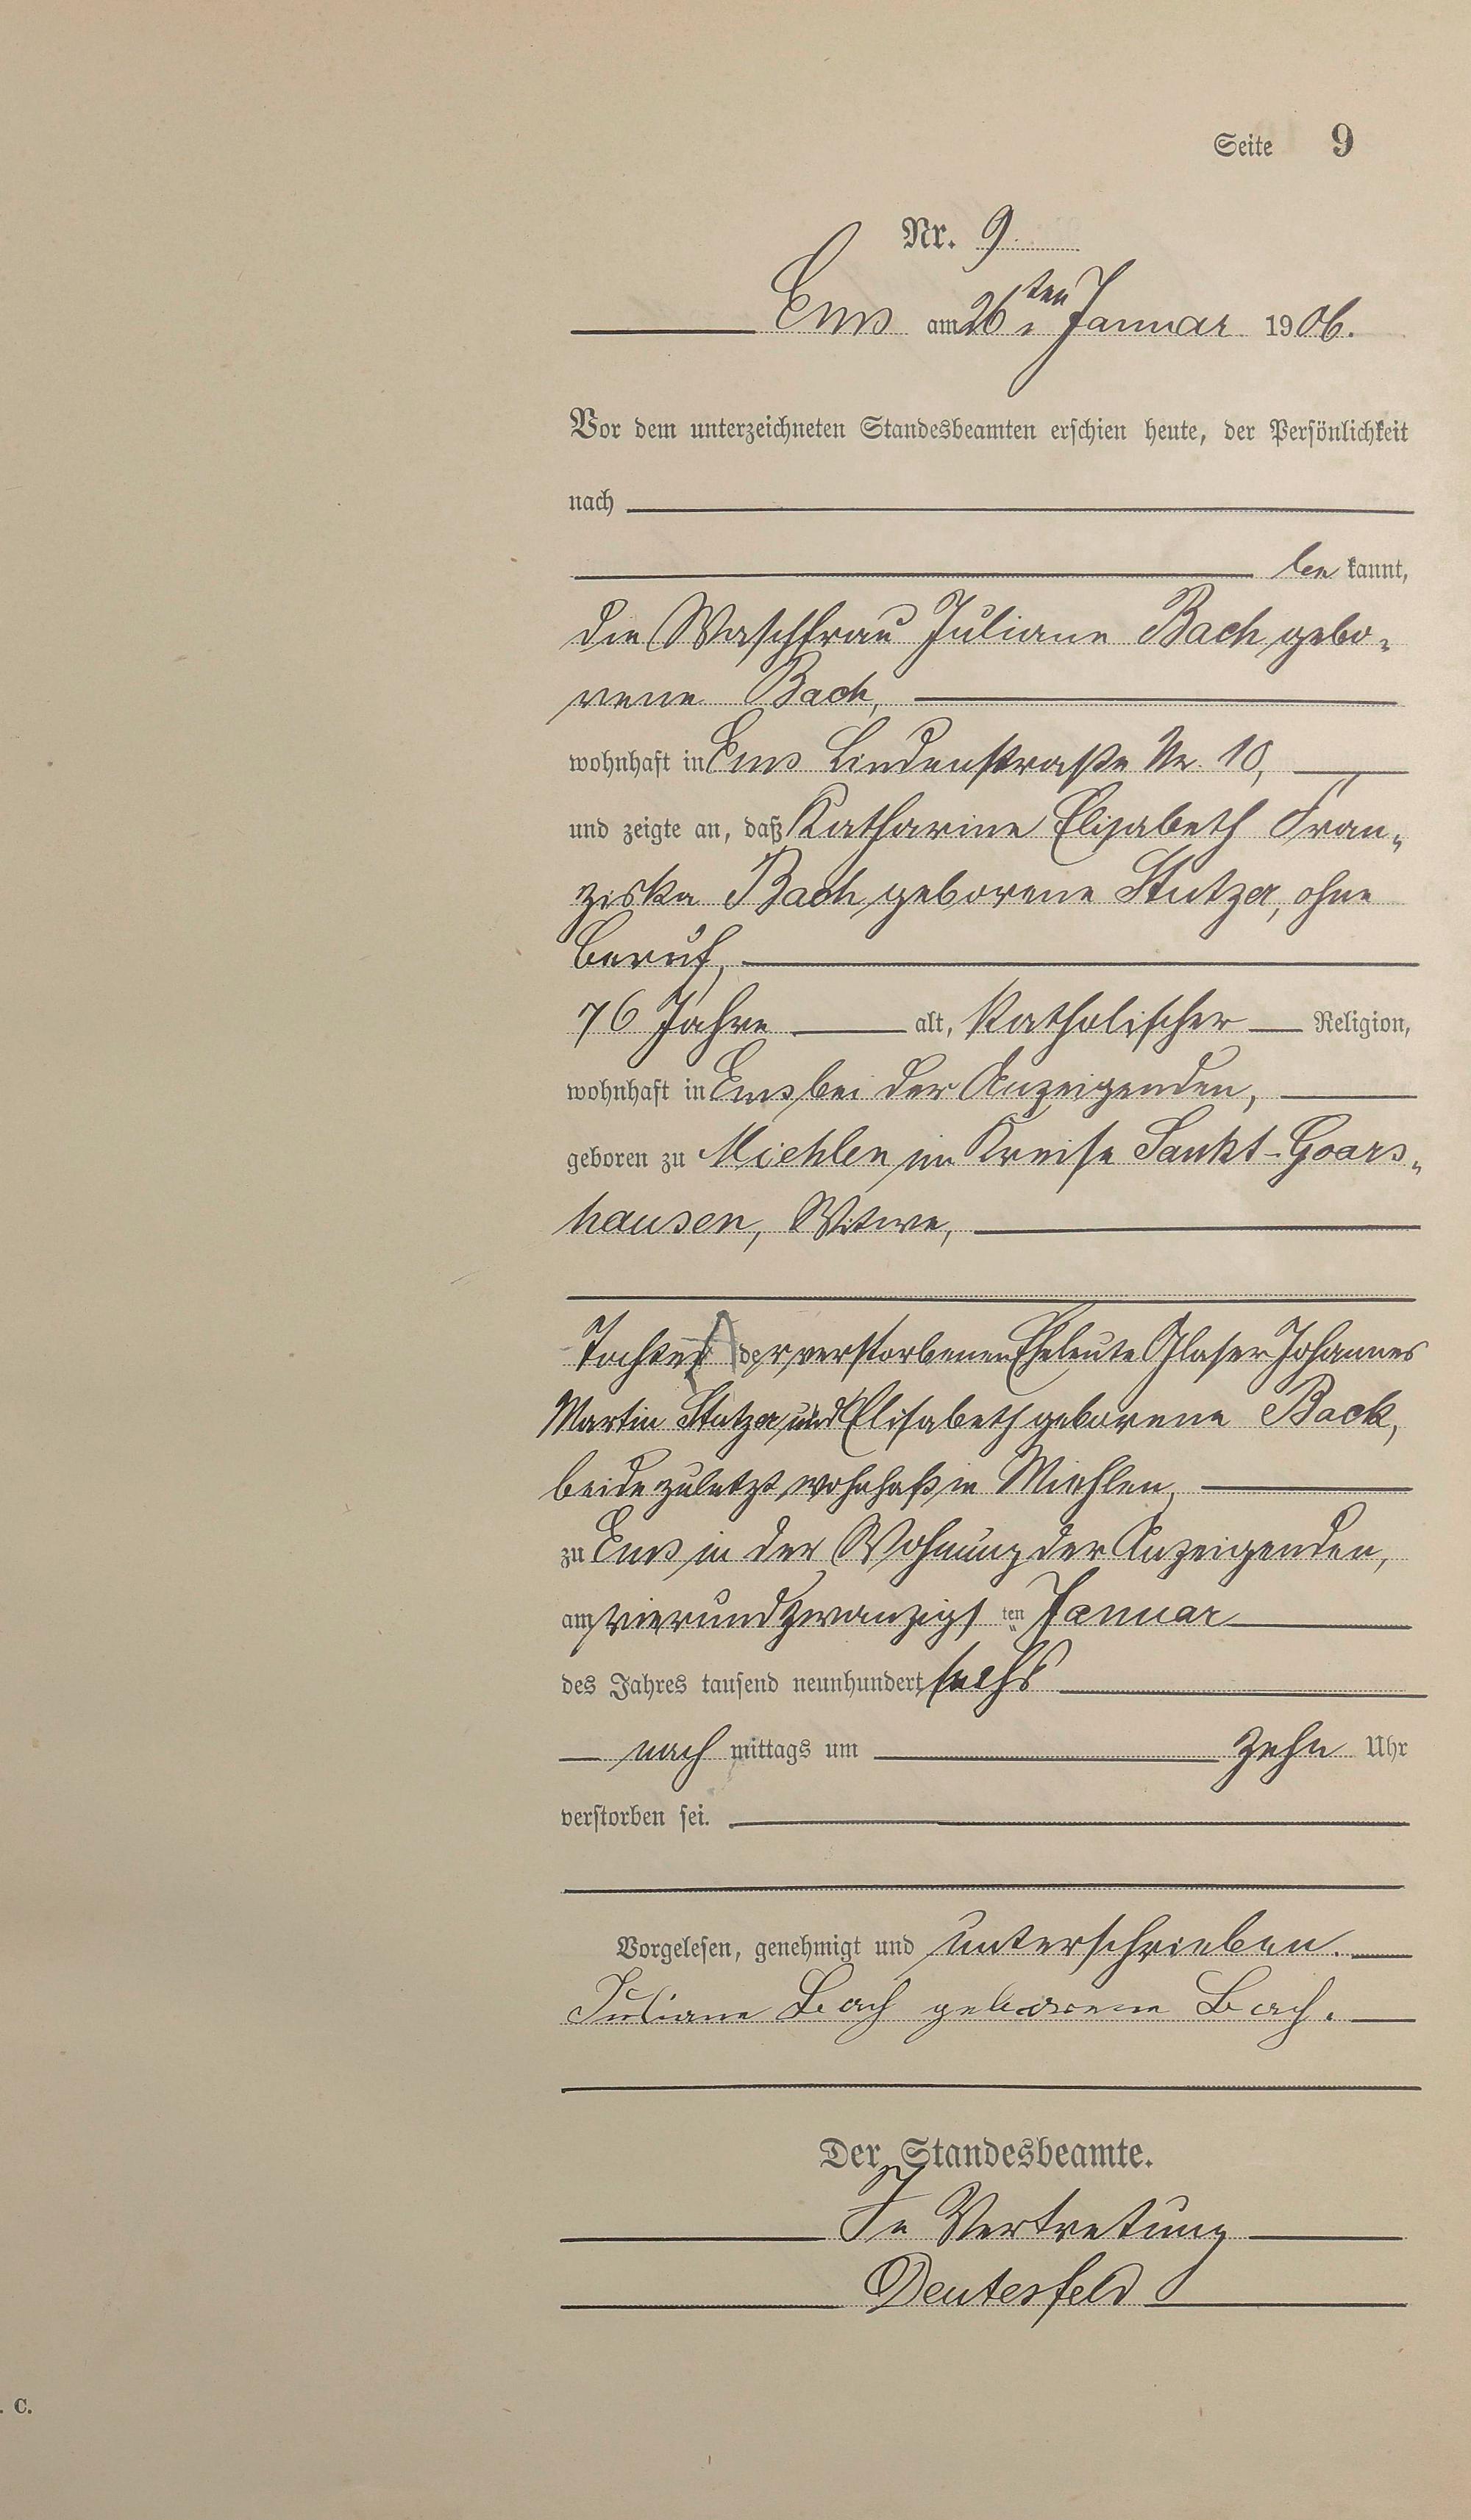 Seite 9
Nr. 9.
Ems am 26ten Januar 1906.
Vor dem unterzeichneten Standesbeamten erschien heute, der Persönlichkeit
nach
be kannt,
die Waschfrau Juliane Bach gebo-
rene Bach,
wohnhaft in Ems Lindenstraße Nr. 10,
und zeigte an, daß Katharine Elisabeth Fran-
ziska Bach geborene Stutzer, ohne
Beruf,
76 Jahre alt, katholischer Religion,
wohnhaft in Ems bei der Anzeigenden,
geboren zu Miehlen im Kreise Sankt-Goars-
hausen, Witwe,
Tochter der verstorbenen Eheleute Glaser Johannes
Martin Stutzer und Elisabeth geborene Back,
beide zuletzt wohnhaft in Miehlen,
zu Ems in der Wohnung der Anzeigenden,
am vierundzwanzigsten Januar
des Jahres tausend neunhundert sechs
nach mittags um zehn Uhr
verstorben sei.
Vorgelesen, genehmigt und unterschrieben.
Juliane Bach geborene Bach.
Der Standesbeamte.
In Vertretung
Deutesfeld
. C.